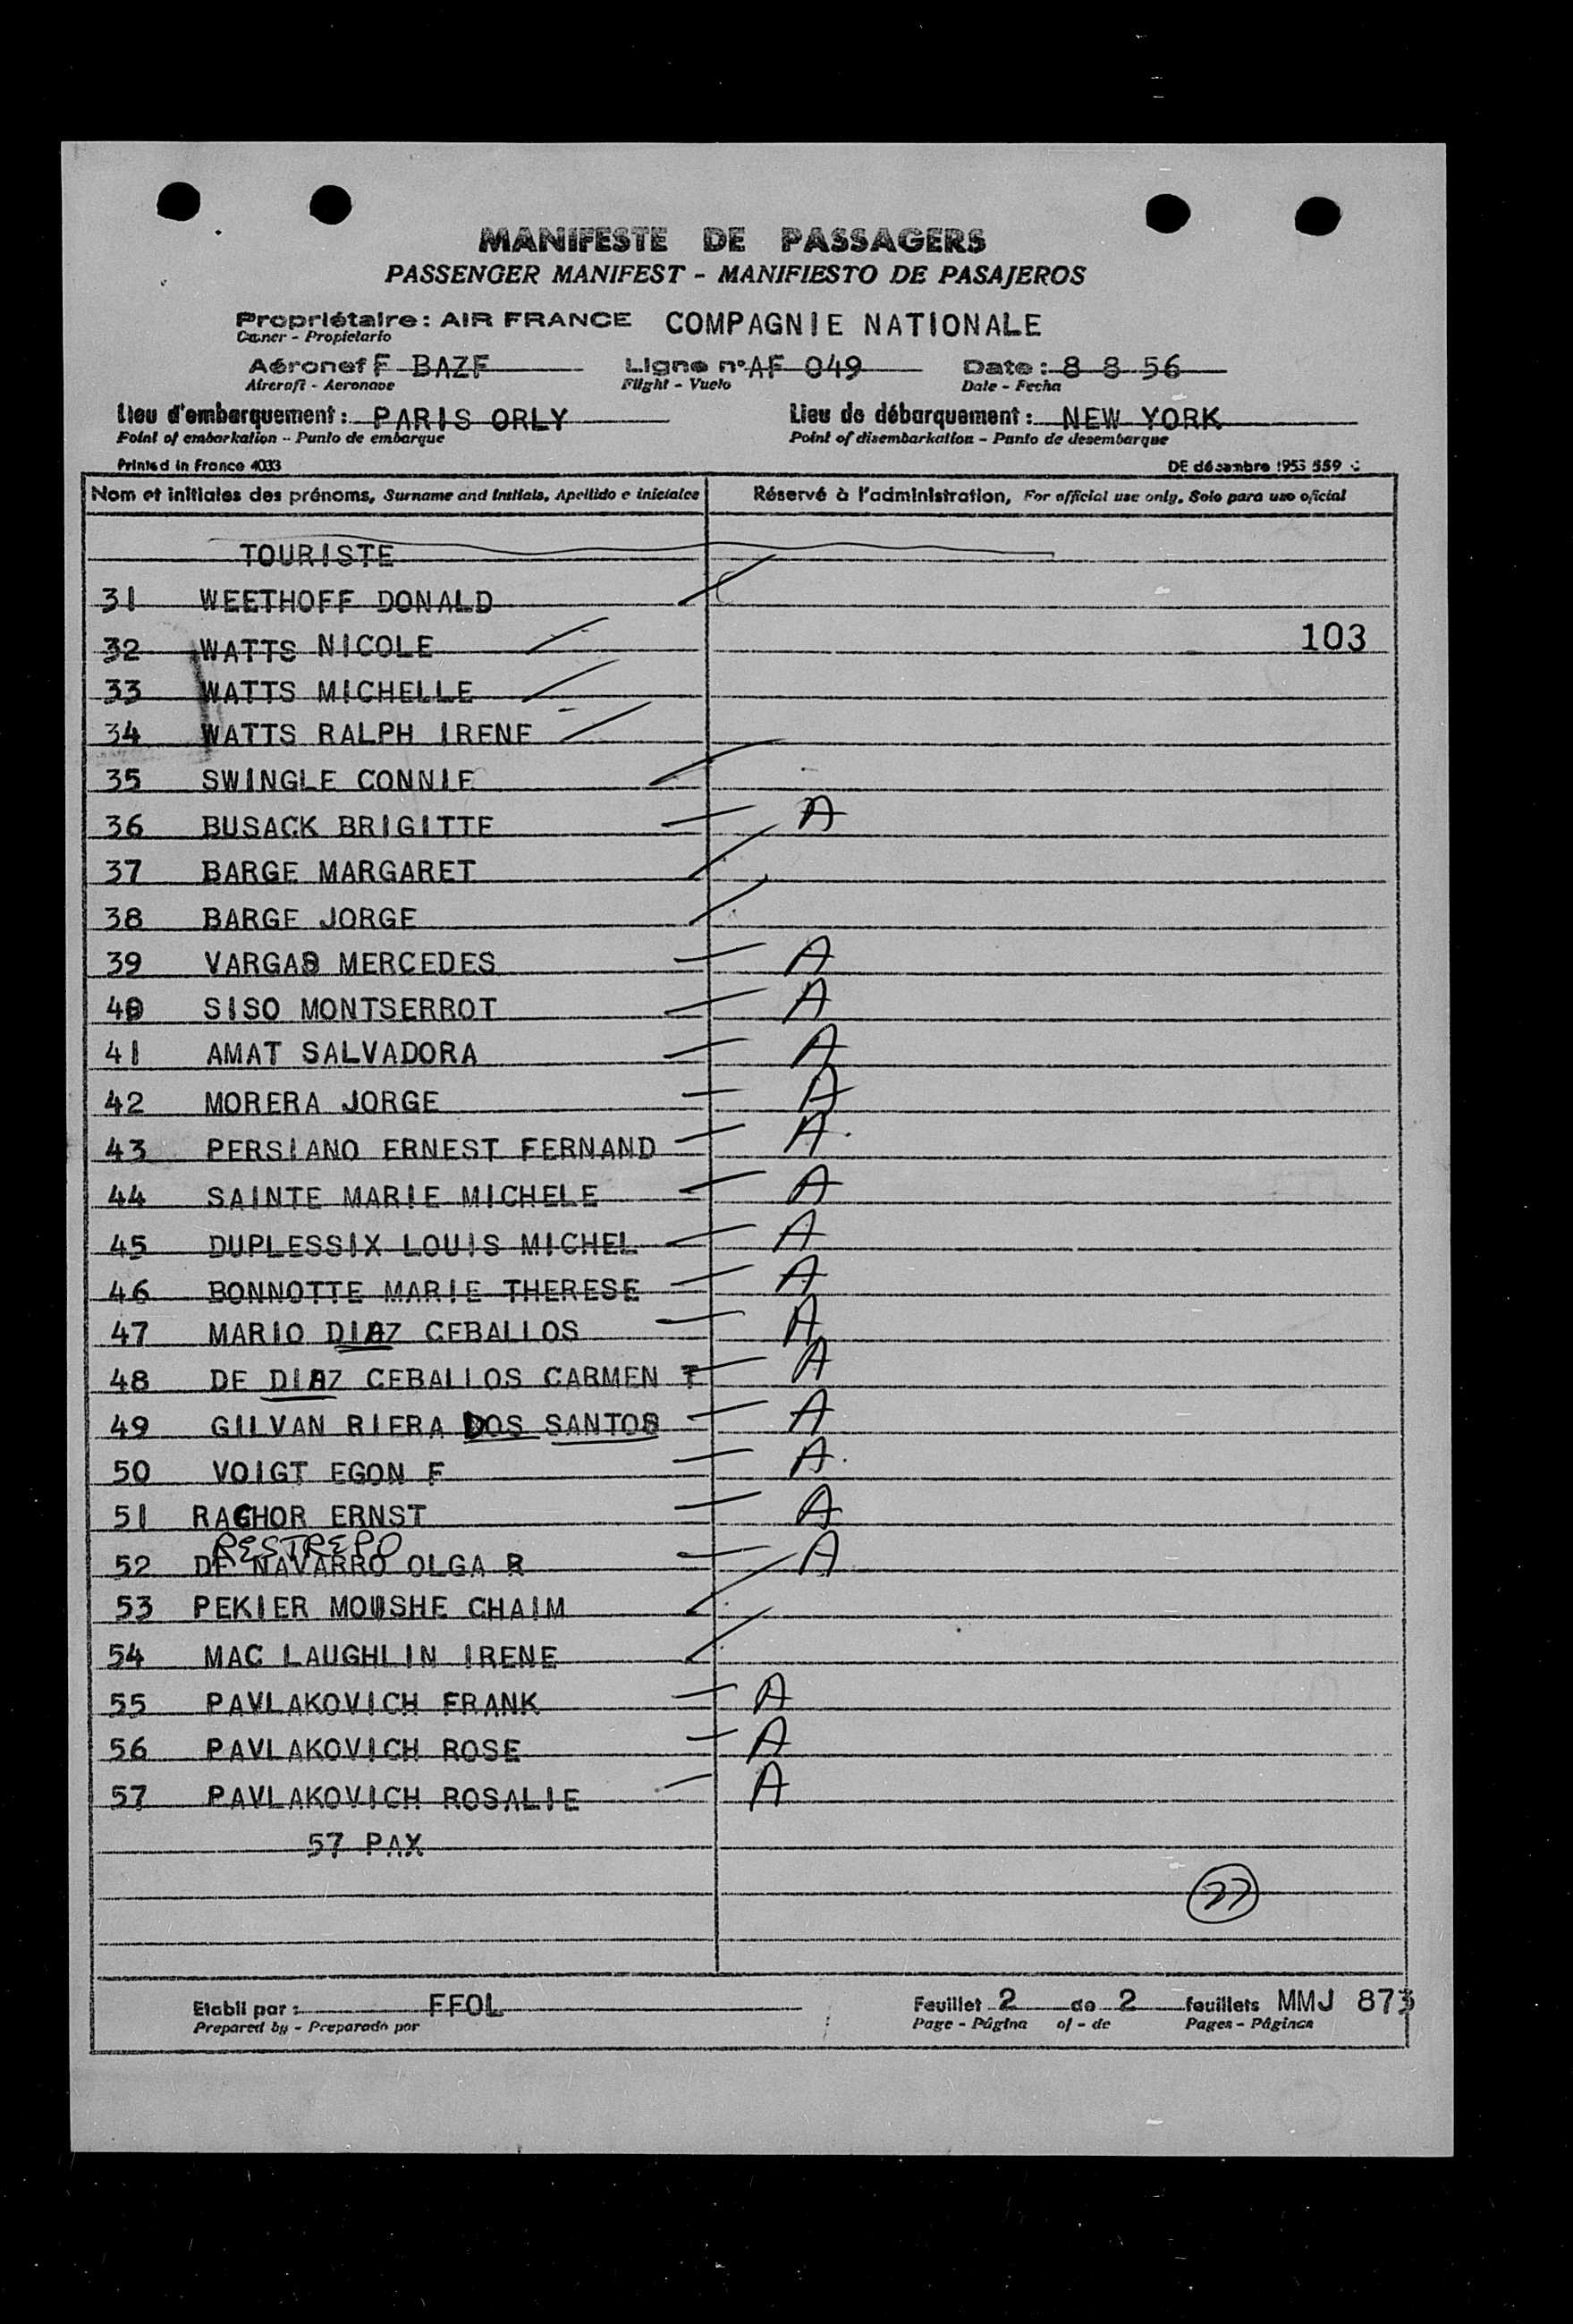 MANIFESTE DE PASSAGERS
PASSENGER MANIFEST - MANIFIESTO DE PASAJEROS
Propriétaire : AIR FRANCE COMPAGNIE NATIONALE
Owner - Propietario
Aéronef F BAZF Ligne n° AF 049 Date : 8 8 56
Aircraft - Aeronave Flight - Vuelo Date - Fecha
Lieu d'embarquement : PARIS ORLY Lieu de débarquement : NEW YORK
Point of embarkation - Punto de embarque Point of disembarkation - Punto de desembarque
Printed in France 4033 DE décembre 1953 559
Nom et initiales des prénoms, Surname and Initials, Apellido e iniciales Réservé à l'administration, For official use only, Solo para uso oficial
TOURISTE
31 WEETHOFF DONALD
32 WATTS NICOLE 103
33 WATTS MICHELLE
34 WATTS RALPH IRENE
35 SWINGLE CONNIE
36 BUSACK BRIGITTE A
37 BARGE MARGARET
38 BARGE JORGE
39 VARGAS MERCEDES A
40 SISO MONTSERROT A
41 AMAT SALVADORA A
42 MORERA JORGE A
43 PERSIANO ERNEST FERNAND A
44 SAINTE MARIE MICHELE A
45 DUPLESSIX LOUIS MICHEL A
46 BONNOTTE MARIE THERESE A
47 MARIO DIAZ CEBALLOS A
48 DE DIAZ CEBALLOS CARMEN T A
49 GILVAN RIERA DOS SANTOS A
50 VOIGT EGON F A
51 RACHOR ERNST A
RESTREPO
52 DE NAVARRO OLGA R A
53 PEKIER MOUSHE CHAIM
54 MAC LAUGHLIN IRENE
55 PAVLAKOVICH FRANK A
56 PAVLAKOVICH ROSE A
57 PAVLAKOVICH ROSALIE A
57 PAX
27
Etabli par : FFOL Feuillet 2 de 2 feuillets MMJ 873
Prepared by - Preparado por Page - Página of - de Pages - Páginas